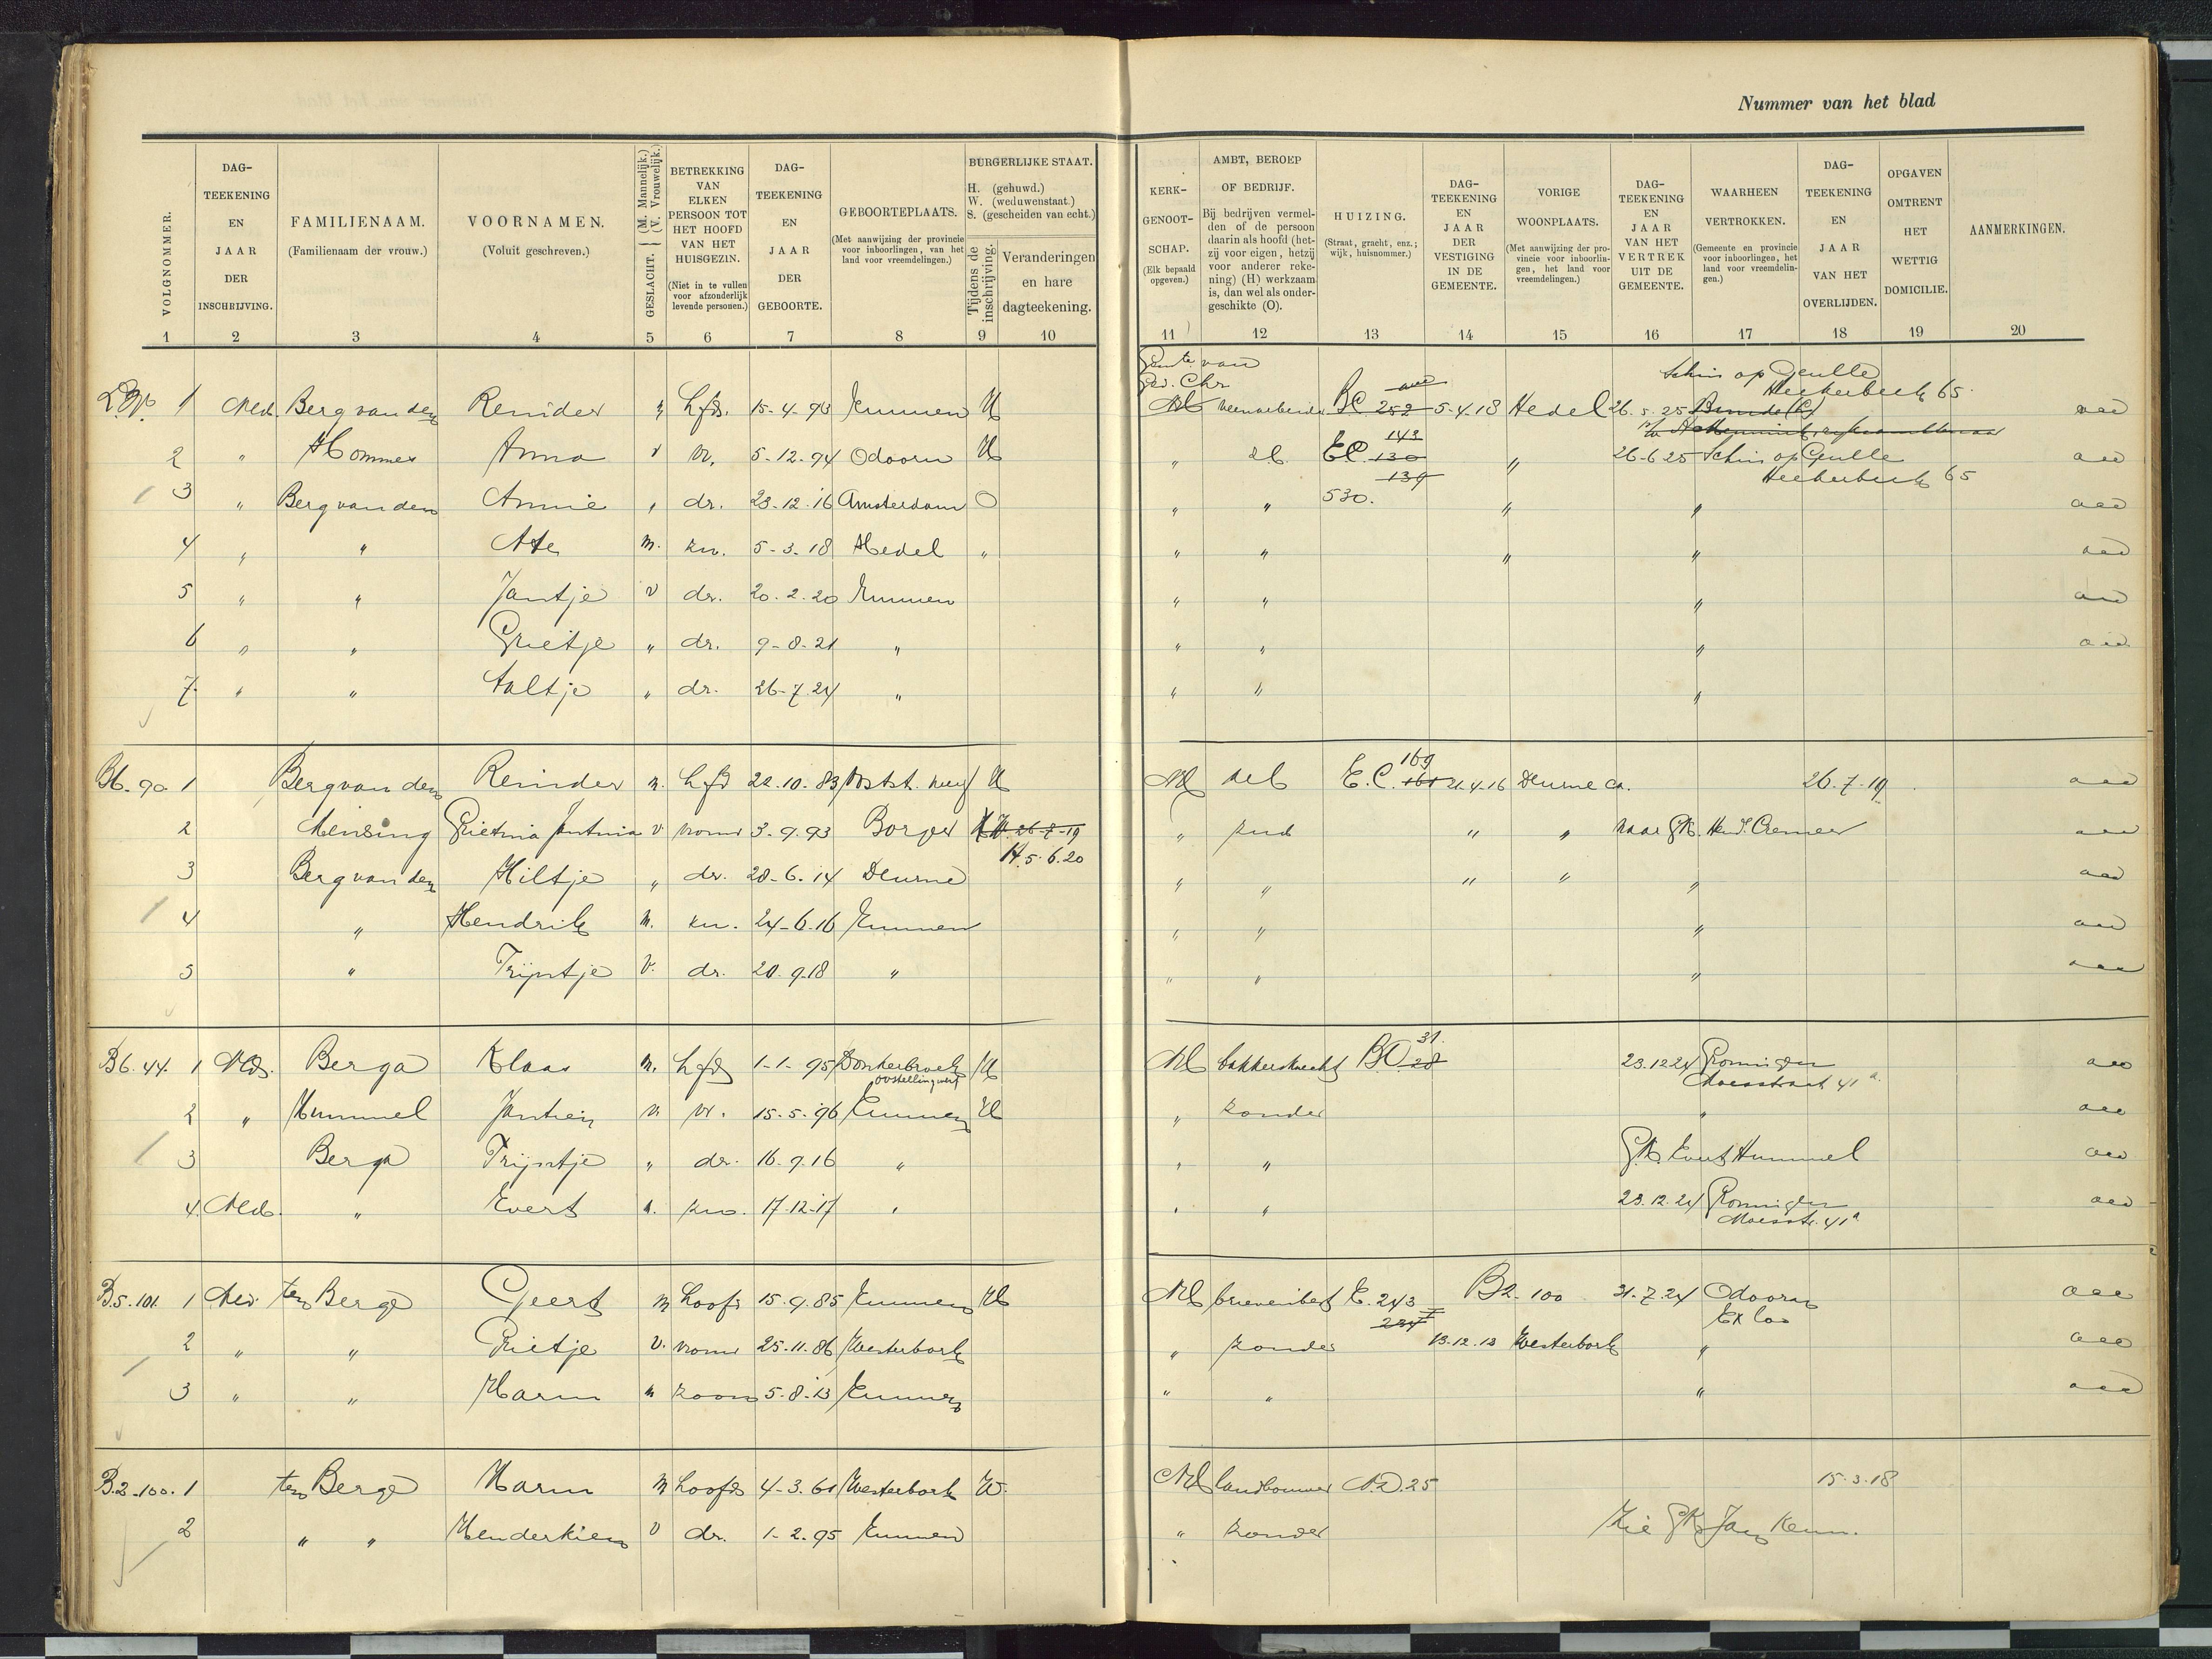 Nummer van het blad
VOLGNOMMER.
DAG-TEEKENING EN JAAR DER INSCHRIJVING.
FAMILIENAAM. (Familienaam der vrouw.)
VOORNAMEN. (Voluit geschreven.)
GESLACHT. (M. Mannelijk.) (V. Vrouwelijk.)
BETREKKING VAN ELKEN PERSOON TOT HET HOOFD VAN HET HUISGEZIN. (Niet in te vullen voor afzonderlijk levende personen.)
DAG-TEEKENING EN JAAR DER GEBOORTE.
GEBOORTEPLAATS. (Met aanwijzing der provincie voor inboorlingen, van het land voor vreemdelingen.)
BURGERLIJKE STAAT. H. (gehuwd.) W. (weduwenstaat.) S. (gescheiden van echt.)
Tijdens de inschrijving.
Veranderingen en hare dagteekening.
KERK-GENOOT-SCHAP. (Elk bepaald opgeven.)
AMBT, BEROEP OF BEDRIJF. Bij bedrijven vermelden of de persoon daarin als hoofd (hetzij voor eigen, hetzij voor anderer rekening) (H) werkzaam is, dan wel als ondergeschikte (O).
HUIZING. (Straat, gracht, enz.; wijk, huisnommer.)
DAG-TEEKENING EN JAAR DER VESTIGING IN DE GEMEENTE.
VORIGE WOONPLAATS. (Met aanwijzing der provincie voor inboorlingen, het land voor vreemdelingen.)
DAG-TEEKENING EN JAAR VAN HET VERTREK UIT DE GEMEENTE.
WAARHEEN VERTROKKEN. (Gemeente en provincie voor inboorlingen, het land voor vreemdelingen.)
DAG-TEEKENING EN JAAR VAN HET OVERLIJDEN.
OPGAVEN OMTRENT HET WETTIG DOMICILIE.
AANMERKINGEN.
1 2 3 4 5 6 7 8 9 10 11 12 13 14 15 16 17 18 19 20
Schin op Geulle
Heekerbeek 65
1 Ned. Berg van den Reinder hfd. 15-4-93 Emmen H NH BC 252 5.4.18 Hedel 26.5.25
2 " Hommes Anna v vr. 5-12-94 Odoorn H " EC 143 130 139 " 26-6 25 Schin op Geulle
Heekerbeek 65
3 " Berg van den Annie " dr. 23.12.16 Amsterdam O " " 530. " "
4 " " Ate m. zn. 5-3-18 Hedel " " " " "
5 " " Jantje v dr. 20.2.20 Emmen " " "
6 " " Grietje " dr. 9-8-21 " " " "
7 " " Aaltje " dr. 26-7-24 " " " "
B6.90 1 Berg van den Reinder m. hfd 22.10.83 H NH E.C. 169 161 21.4.16 Deurne ca. 26.7.19
2 Mensing Grietina Jantina v vrouw 3-9-93 Borger H W. 26-7-19 " " " naar GK. Hend. Cremer
H. 5.6.20
3 Berg van den Hiltje " dr. 28-6-14 Deurne " " " " "
4 " Hendrik m. zn. 24-6-16 Emmen " " "
5 " Trijntje v. dr. 20.9.18 " " " "
B6.44. 1 Ned. Berga Klaas m. hfd 1-1-95 Donkerbroek H NH bakkersknecht 31. 28 23.12.24 Groningen
Ooststellingwerf Moesstraat 41a
2 " Hummel Jantien v. vr. 15-5-96 Emmen H " zonder "
3 Berga Trijntje " dr. 16.9.16 " " " GK. Evert Hummel
4. Ned. " Evert m. zn. 17-12-17 " " " 23.12.24 Groningen
Moesstr. 41a
B.5.101. 1 Ned. ten Berge Geert m hoofd 15-9-85 Emmen H NH E. 243 B2-100 31.7.24 Odoorn
Exloo
2 " " Grietje v. vrouw 25-11-86 Westerbork " zonder 13.12.13 Westerbork "
3 " " Harm m zoon 5-8-13 Emmen " " "
B.2-100. 1 ten Berge Harm m hoofd 4-3-61 Westerbork W. NH landbouwer N.D. 25 15-3-18
2 " " Henderkien v dr. 1-2-95 Emmen " zonder Zie GK Jan